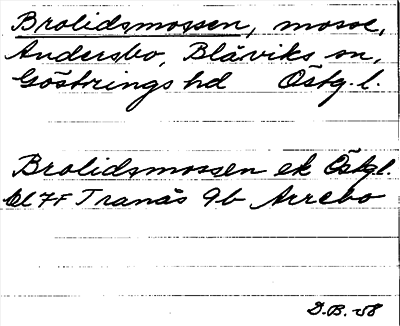 Brolidsmossen, mosse,
Andersbo, Blåviks sn,
Göstrings hd Östg. l.
Brolidsmossen ek Östgl.
bl 7F Tranås 9b Arrebo
D.B. -58